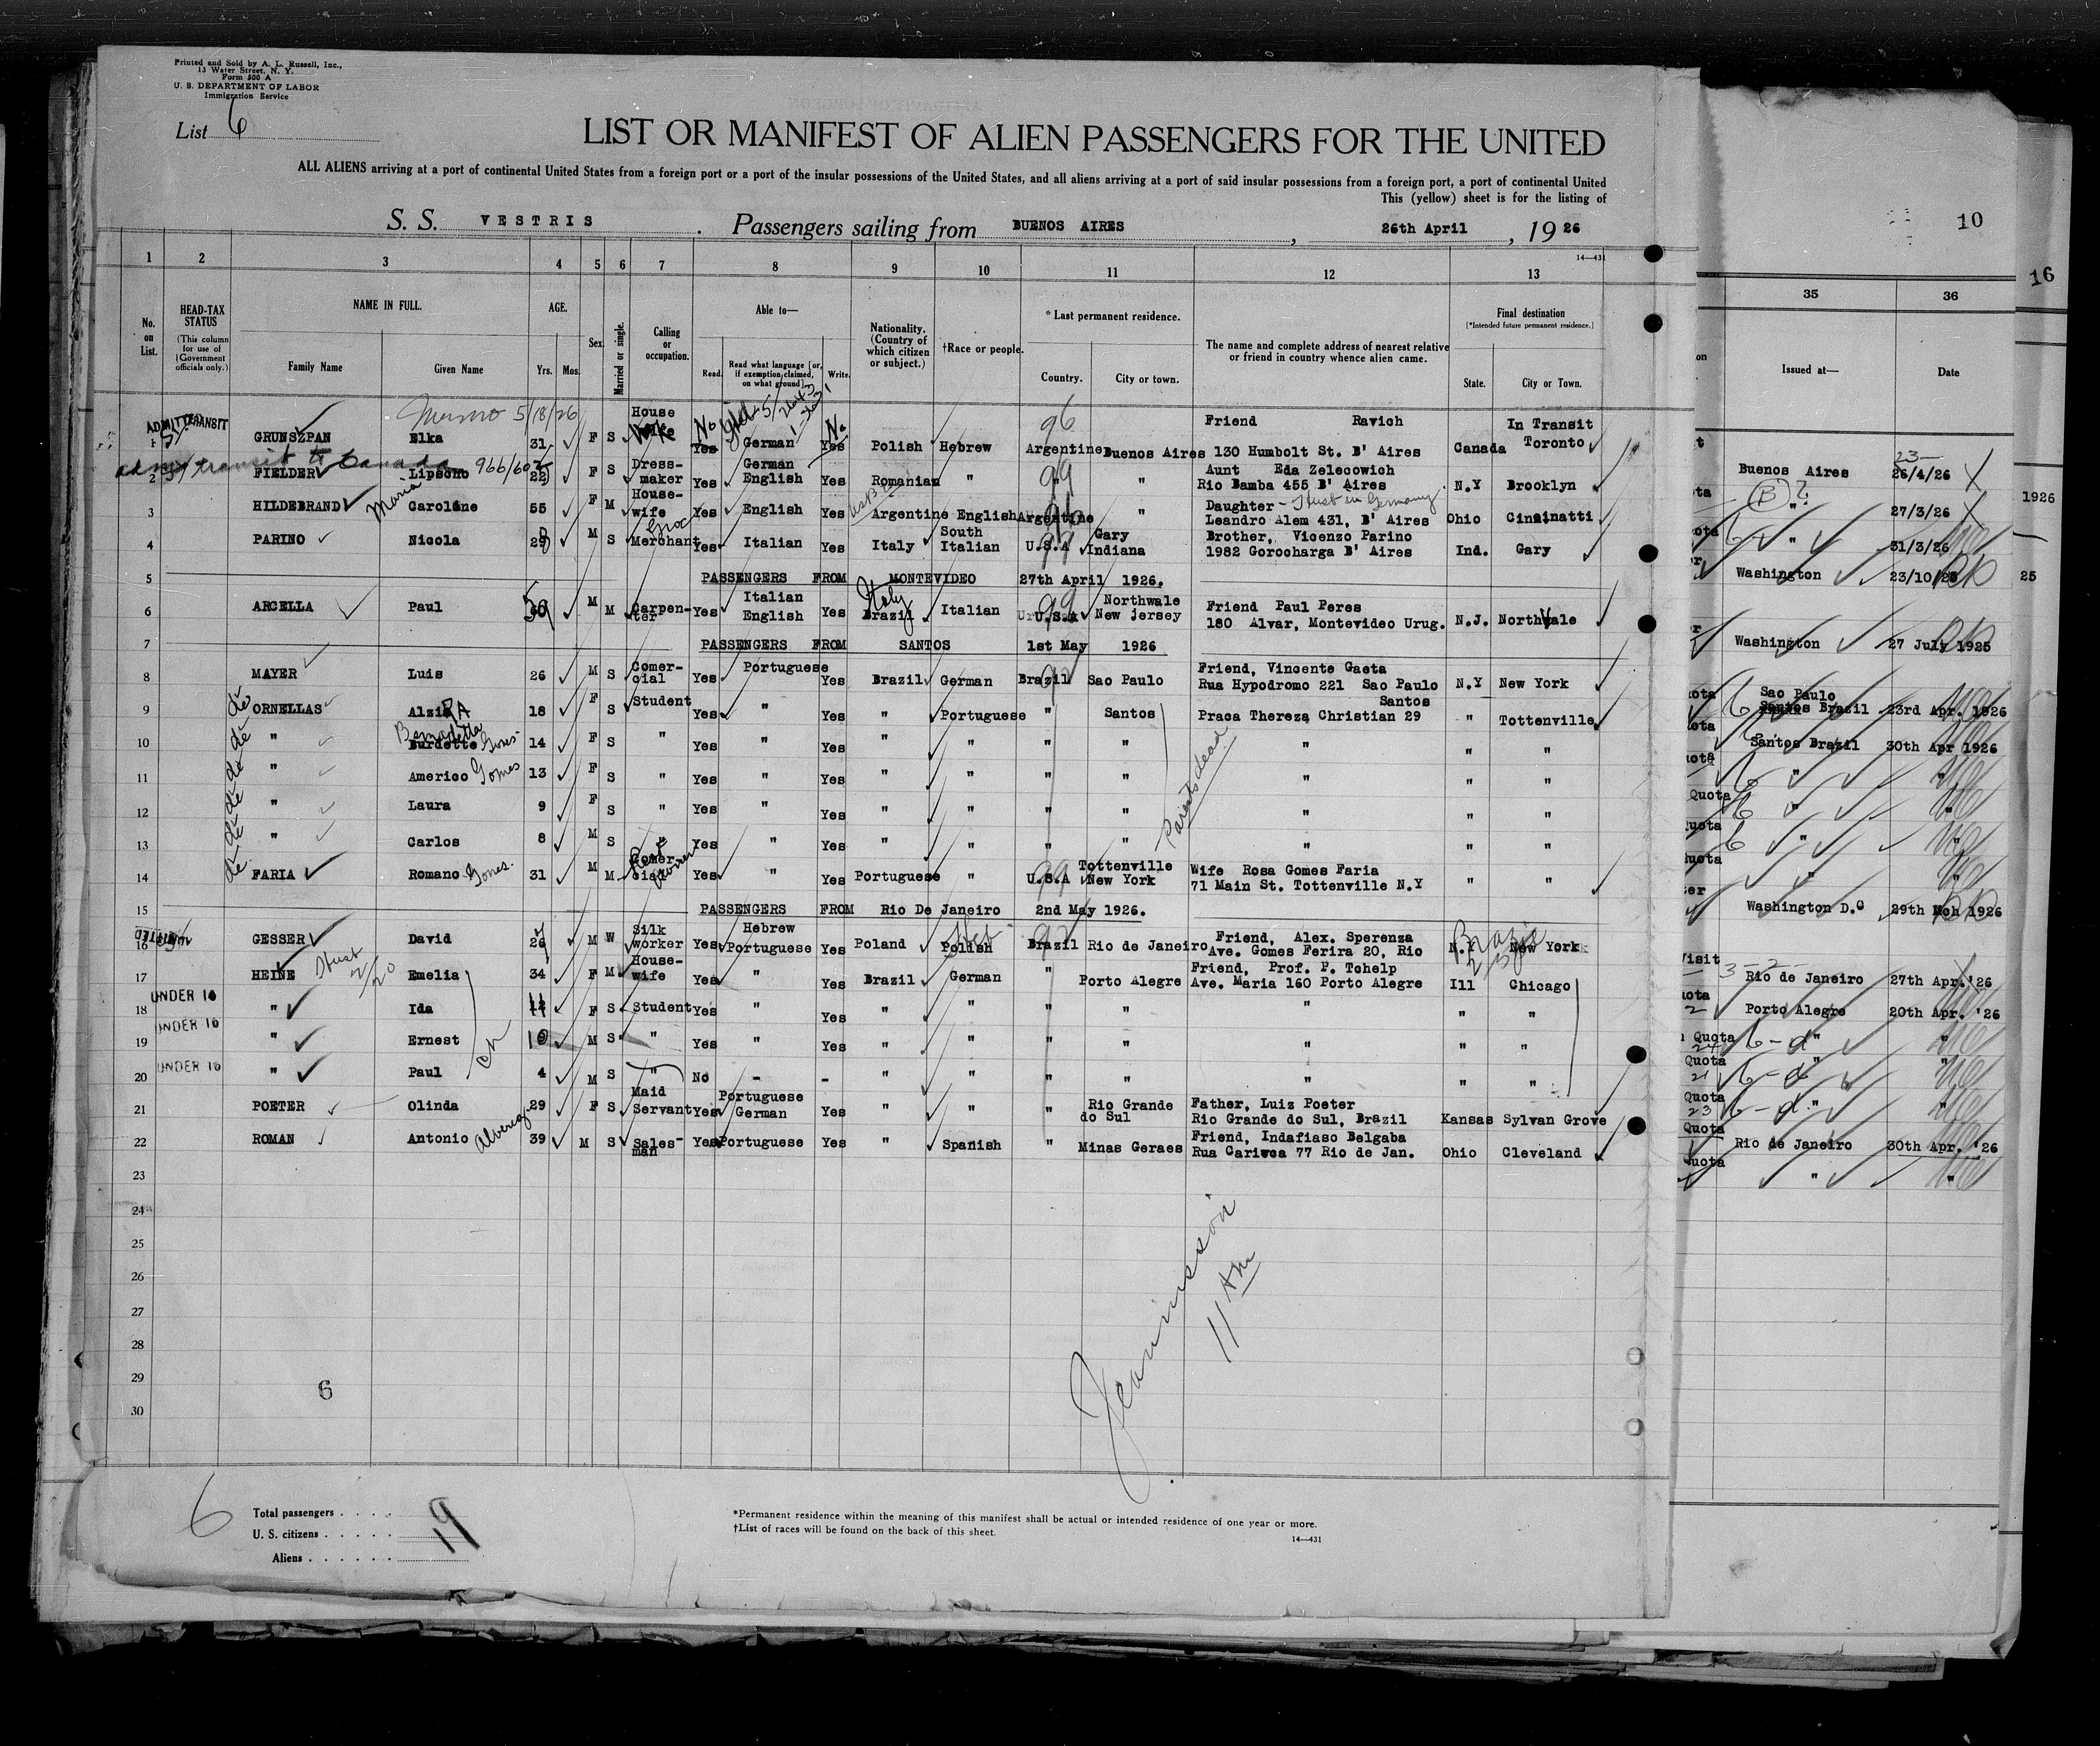 Printed and Sold by A. L. Russell, Inc.,
13 Water Street, N. Y.
Form 500 A
U. S. DEPARTMENT OF LABOR
Immigration Service
List 6
LIST OR MANIFEST OF ALIEN PASSENGERS FOR THE UNITED
ALL ALIENS arriving at a port of continental United States from a foreign port or a port of the insular possessions of the United States, and all aliens arriving at a port of said insular possessions from a foreign port, a port of continental United
This (yellow) sheet is for the listing of
S. S. VESTRIS . Passengers sailing from BUENOS AIRES , 26th April , 19 26
10
16
14—431
1 2 3 4 5 6 7 8 9 10 11 12 13 35 36
No. on List.
HEAD-TAX STATUS (This column for use of Government officials only.)
NAME IN FULL. Family Name Given Name
AGE. Yrs. Mos.
Sex
Married or single.
Calling or occupation.
Able to— Read. Read what language [or, if exemption claimed, on what ground] Write.
Nationality. (Country of which citizen or subject.)
†Race or people.
* Last permanent residence. Country. City or town.
The name and complete address of nearest relative or friend in country whence alien came.
Final destination [*Intended future permanent residence.] State. City or Town.
Issued at— Date
ADMITTED TRANSIT 5/18/26
1 GRUNSZPAN Elka 31 F S House Wife Yes No German Yes No Polish Hebrew 96 Argentine Buenos Aires Friend Ravich 130 Humbolt St. B' Aires Canada In Transit Toronto
transit to Canada 966/602
2 FIELDER Lipscho 22 F S Dress-maker Yes German English Yes Romanian " 99 " " Aunt Eda Zelecowich Rio Bamba 455 B' Aires N.Y Brooklyn Buenos Aires 26/4/26
3 HILDEBRAND Maria Caroline 55 F M House-wife Yes English Yes Argentine English Argentine " Daughter - Husb in Germany Leandro Alem 431, B' Aires Ohio Cincinatti " 27/3/26 1926
4 PARINO Nicola 29 M S Merchant Yes Italian Yes Italy South Italian U.S.A Gary Indiana Brother, Vicenzo Parino 1982 Gorocharga B' Aires Ind. Gary " 31/3/26
5 PASSENGERS FROM MONTEVIDEO 27th April 1926. Washington 23/10/25 25
6 ARCELLA Paul 50 M M Carpenter Yes Italian English Yes Brazil Italy Italian 99 U.S.A Northwale New Jersey Friend Paul Peres 180 Alvar, Montevideo Urug. N.J. Northvale
7 PASSENGERS FROM SANTOS 1st May 1926 Washington 27 July 1925
8 MAYER Luis 26 M S Comercial Yes Portuguese Yes Brazil German Brazil Sao Paulo Friend, Vincente Gaeta Rua Hypodromo 221 Sao Paulo N.Y New York
9 de ORNELLAS Alzira 18 F S Student Yes " Yes " Portuguese " Santos Santos Praca Thereza Christian 29 " Tottenville Sao Paulo Brazil 23rd Apr. 1926
10 de " Burdette Bernadetta 14 F S " Yes " Yes " " " " " " " Santos Brazil 30th Apr 1926
11 de " Americo Gomes 13 F S " Yes " Yes " " " " " " " " "
12 de " Laura 9 F S " Yes " Yes " " " " " " " " "
13 de " Carlos 8 M S " Yes " Yes " " " " " " " " "
Parents dead
14 de FARIA Romano Gomes. 31 M M Comercial Yes " Yes Portuguese " 99 U.S.A Tottenville New York Wife Rosa Gomes Faria 71 Main St. Tottenville N.Y " " " "
15 PASSENGERS FROM Rio De Janeiro 2nd May 1926. Washington D.C 29th Mch 1926
ADMITTED
16 GESSER David 26 M W Silk worker Yes Hebrew Portuguese Yes Poland Polish Heb Brazil Rio de Janeiro Friend, Alex. Sperenza Ave. Gomes Ferira 20, Rio N.Y New York Brazil
17 HEINE Emelia 34 F M House-wife Yes " Yes Brazil German " Porto Alegre Friend, Prof. P. Tchelp Ave. Maria 160 Porto Alegre Ill Chicago Rio de Janeiro 27th Apr. '26
UNDER 16
18 " Ida F S Student Yes " Yes " " " " " " " Porto Alegre 20th Apr. '26
UNDER 16
19 " Ernest 10 M S " Yes " Yes " " " " " " " " "
UNDER 16
20 " Paul 4 M S " No - - " " " " " " " " "
21 POETER Olinda 29 F S Maid Servant Yes Portuguese German Yes " " " Rio Grande do Sul Father, Luiz Poeter Rio Grande do Sul, Brazil Kansas Sylvan Grove " "
22 ROMAN Antonio Alverez 39 M S Salesman Yes Portuguese Yes " Spanish " Minas Geraes Friend, Indafiaso Belgaba Rua Carioca 77 Rio de Jan. Ohio Cleveland Rio de Janeiro 30th Apr. '26
23 " "
24
25
26
27
28
29
30
11 AM
6
6
Total passengers . . . .
U. S. citizens . . . . .
Aliens . . . . . .
19
*Permanent residence within the meaning of this manifest shall be actual or intended residence of one year or more.
†List of races will be found on the back of this sheet.
14—431